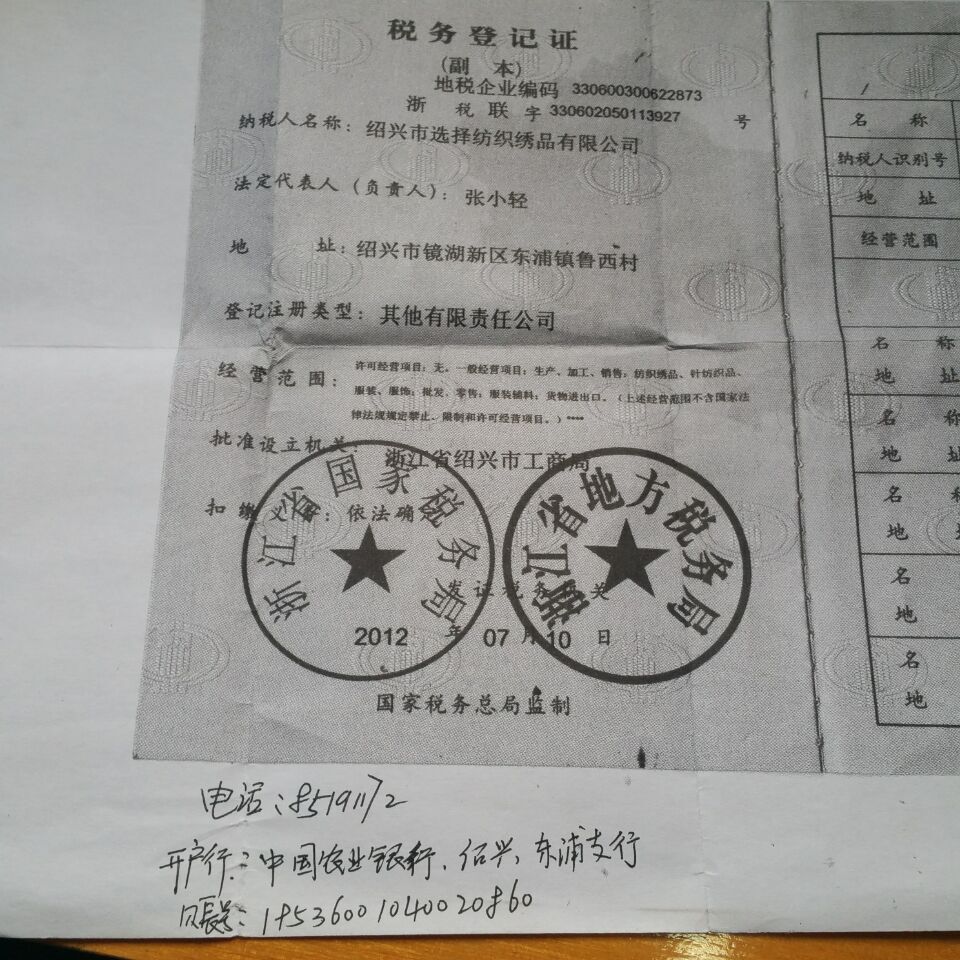 税务登记证
(副 本)
地税企业编码 330600300622873
浙 税 联 字 330602050113927 号
纳税人名称：绍兴市选择纺织绣品有限公司
法定代表人（负责人）：张小轻
地 址：绍兴市镜湖新区东浦镇鲁西村
登记注册类型：其他有限责任公司
经营范围：许可经营项目：无。一般经营项目：生产、加工、销售：纺织绣品、针纺织品、
服装、服饰；批发、零售：服装辅料；货物进出口。（上述经营范围不含国家法
律法规规定禁止、限制和许可经营项目。）****
批准设立机关：浙江省绍兴市工商局
扣缴义务：依法确定
浙江省国家税务局
浙江省地方税务局
发证税务机关
2012 年 07 月 10 日
国家税务总局监制
电话：85191172
开户行：中国农业银行、绍兴、东浦支行
账号：19536001040020860
名 称
纳税人识别号
地 址
经营范围
名 称
地 址
名 称
地 址
名
地
名
地
名
地